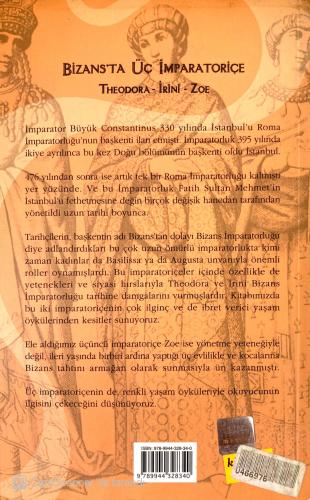 BİZANS'TA ÜÇ İMPARATORİÇE
THEODORA - İRİNİ - ZOE
İmparator Büyük Constantinus 330 yılında İstanbul'u Roma
İmparatorluğu'nun başkenti ilan etmişti. İmparatorluk 395 yılında
ikiye ayrılınca bu kez Doğu bölümünün başkenti oldu İstanbul.
476 yılından sonra ise artık tek bir Roma İmparatorluğu kalmıştı
yer yüzünde. Ve bu İmparatorluk Fatih Sultan Mehmet'in
İstanbul'u fethetmesine değin birçok değişik hanedan tarafından
yönetildi uzun tarihi boyunca.
Tarihçilerin, başkentin adı Bizans'tan dolayı Bizans İmparatorluğu
diye adlandırdıkları bu çok uzun ömürlü imparatorlukta kimi
zaman kadınlar da Basilissa ya da Augusta unvanıyla önemli
roller oynamışlardı. Bu imparatoriçeler içinde özellikle de
yetenekleri ve siyasi hırslarıyla Theodora ve İrini Bizans
İmparatorluğu tarihine damgalarını vurmuşlardır. Kitabımızda
bu iki imparatoriçenin çok ilginç ve de ibret verici yaşam
öykülerinden kesitler sunuyoruz.
Ele aldığımız üçüncü imparatoriçe Zoe ise yönetme yeteneğiyle
değil, ileri yaşında birbiri ardına yaptığı üç evlilikle ve kocalarına
Bizans tahtını armağan olarak sunmasıyla ün kazanmıştı.
Üç imparatoriçenin de, renkli yaşam öyküleriyle okuyucunun
ilgisini çekeceğini düşünüyoruz.
ISBN: 978-9944-328-34-0
9 789944 328340
0466978